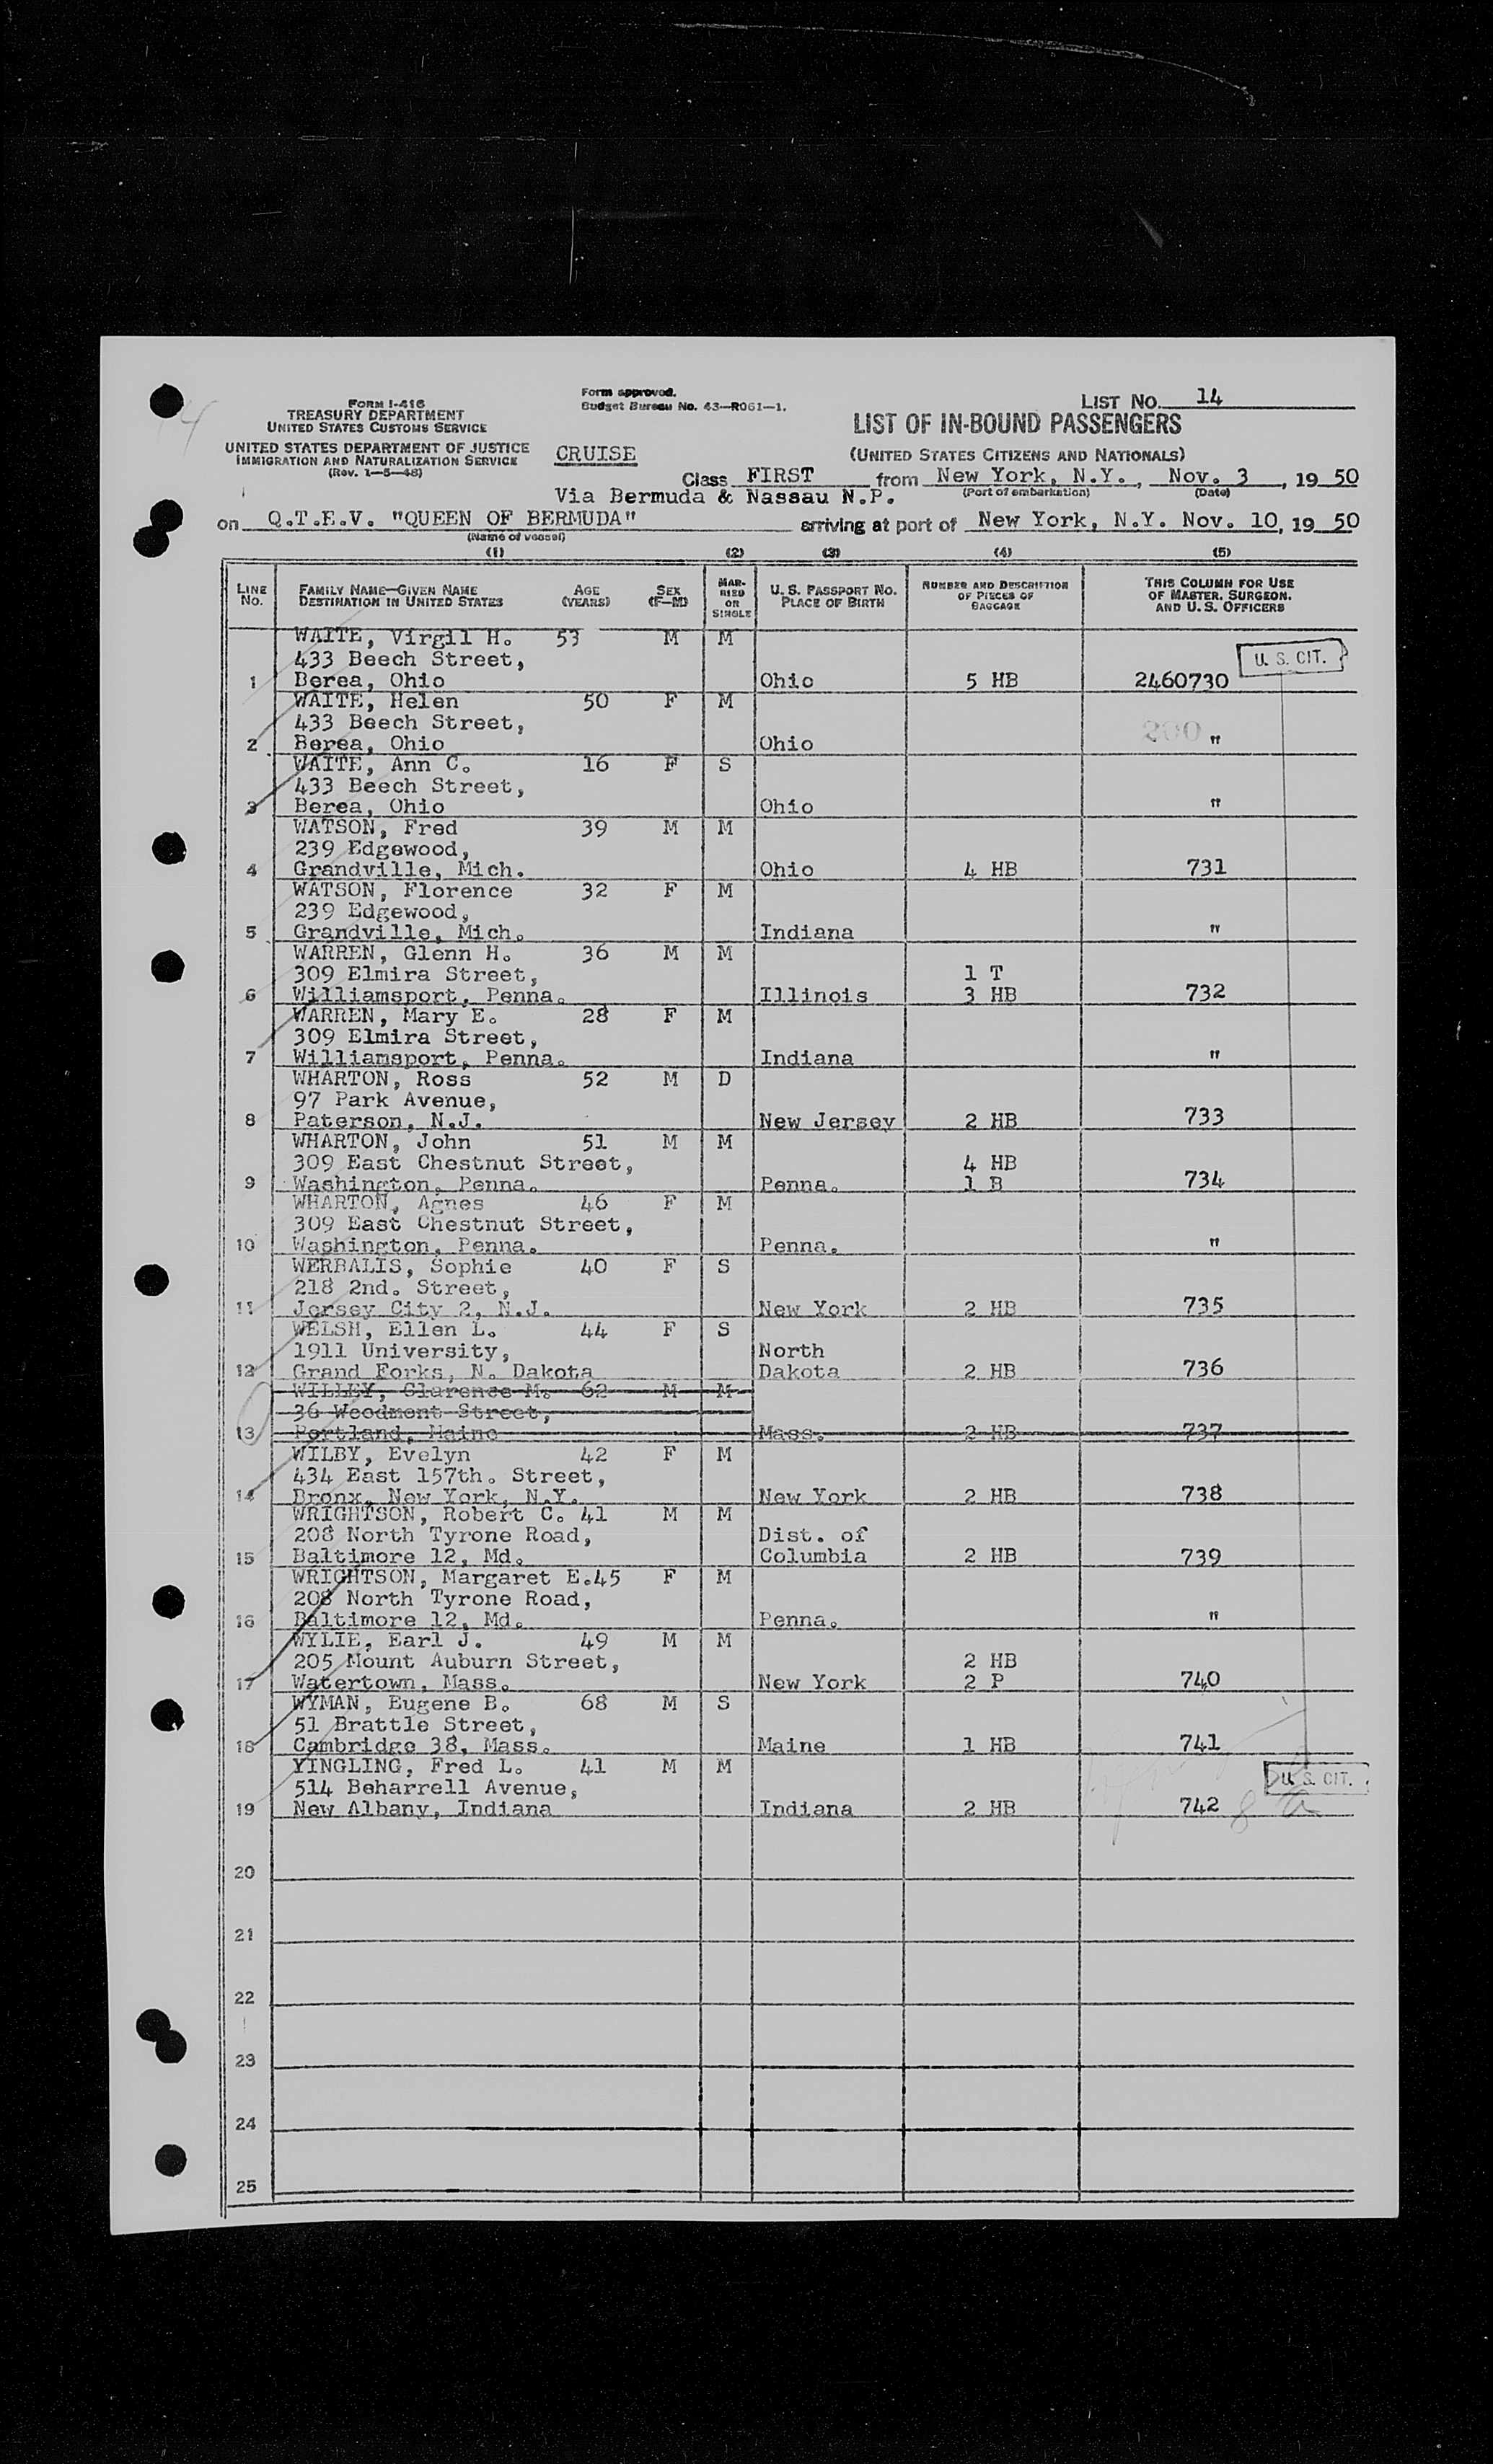 FORM I-416
TREASURY DEPARTMENT
UNITED STATES CUSTOMS SERVICE
UNITED STATES DEPARTMENT OF JUSTICE
IMMIGRATION AND NATURALIZATION SERVICE
(Rev. 1-5-48)
Form approved.
Budget Bureau No. 43-R061-1.
LIST NO. 14
LIST OF IN-BOUND PASSENGERS
(UNITED STATES CITIZENS AND NATIONALS)
CRUISE
Class FIRST from New York, N.Y., Nov. 3, 1950
(Port of embarkation) (Date)
Via Bermuda & Nassau N.P.
on Q.T.E.V. "QUEEN OF BERMUDA" arriving at port of New York, N.Y. Nov. 10, 1950
(Name of vessel)
(1) (2) (3) (4) (5)
LINE NO. FAMILY NAME-GIVEN NAME DESTINATION IN UNITED STATES AGE (YEARS) SEX (F-M) MARRIED OR SINGLE U. S. PASSPORT NO. PLACE OF BIRTH NUMBER AND DESCRIPTION OF PIECES OF BAGGAGE THIS COLUMN FOR USE OF MASTER, SURGEON, AND U. S. OFFICERS
WAITE, Virgil H. 53 M M
433 Beech Street, U. S. CIT.
1 Berea, Ohio Ohio 5 HB 2460730
WAITE, Helen 50 F M
433 Beech Street, 200
2 Berea, Ohio Ohio "
WAITE, Ann C. 16 F S
433 Beech Street,
3 Berea, Ohio Ohio "
WATSON, Fred 39 M M
239 Edgewood,
4 Grandville, Mich. Ohio 4 HB 731
WATSON, Florence 32 F M
239 Edgewood,
5 Grandville, Mich. Indiana "
WARREN, Glenn H. 36 M M
309 Elmira Street, 1 T
6 Williamsport, Penna. Illinois 3 HB 732
WARREN, Mary E. 28 F M
309 Elmira Street,
7 Williamsport, Penna. Indiana "
WHARTON, Ross 52 M D
97 Park Avenue,
8 Paterson, N.J. New Jersey 2 HB 733
WHARTON, John 51 M M
309 East Chestnut Street, 4 HB
9 Washington, Penna. Penna. 1 B 734
WHARTON, Agnes 46 F M
309 East Chestnut Street,
10 Washington, Penna. Penna. "
WERBALIS, Sophie 40 F S
218 2nd. Street,
11 Jersey City 2, N.J. New York 2 HB 735
WELSH, Ellen L. 44 F S
1911 University, North
12 Grand Forks, N. Dakota Dakota 2 HB 736
WILLEY, Clarence M. 62 M M
36 Woodmont Street,
13 Portland, Maine Mass. 2 HB 737
WILBY, Evelyn 42 F M
434 East 157th. Street,
14 Bronx, New York, N.Y. New York 2 HB 738
WRIGHTSON, Robert C. 41 M M
208 North Tyrone Road, Dist. of
15 Baltimore 12, Md. Columbia 2 HB 739
WRIGHTSON, Margaret E. 45 F M
208 North Tyrone Road,
16 Baltimore 12, Md. Penna. "
WYLIE, Earl J. 49 M M
205 Mount Auburn Street, 2 HB
17 Watertown, Mass. New York 2 P 740
WYMAN, Eugene B. 68 M S
51 Brattle Street,
18 Cambridge 38, Mass. Maine 1 HB 741
YINGLING, Fred L. 41 M M
514 Beharrell Avenue, U. S. CIT.
19 New Albany, Indiana Indiana 2 HB 742
20
21
22
23
24
25